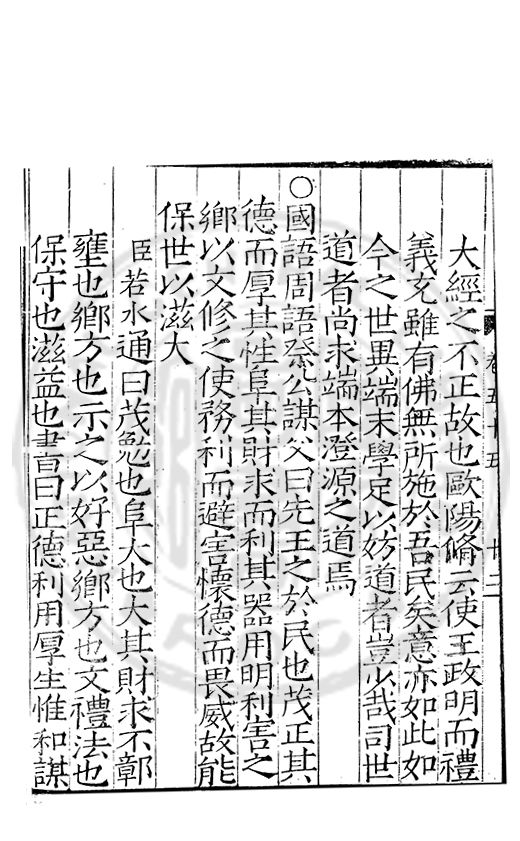 卷五十五 廿二
大經之不正故也歐陽脩云使王政明而禮
義充雖有佛無所施於吾民矣意亦如此如
今之世異端末學足以妨道者豈少哉司世
道者尚求端本澄源之道焉
○國語周語祭公謀父曰先王之於民也茂正其
德而厚其性阜其財求而利其器用明利害之
鄉以文修之使務利而避害懷德而畏威故能
保世以滋大
臣若水通曰茂勉也阜大也大其財求不鄣
壅也鄉方也示之以好惡鄉方也文禮法也
保守也滋益也書曰正德利用厚生惟和謀